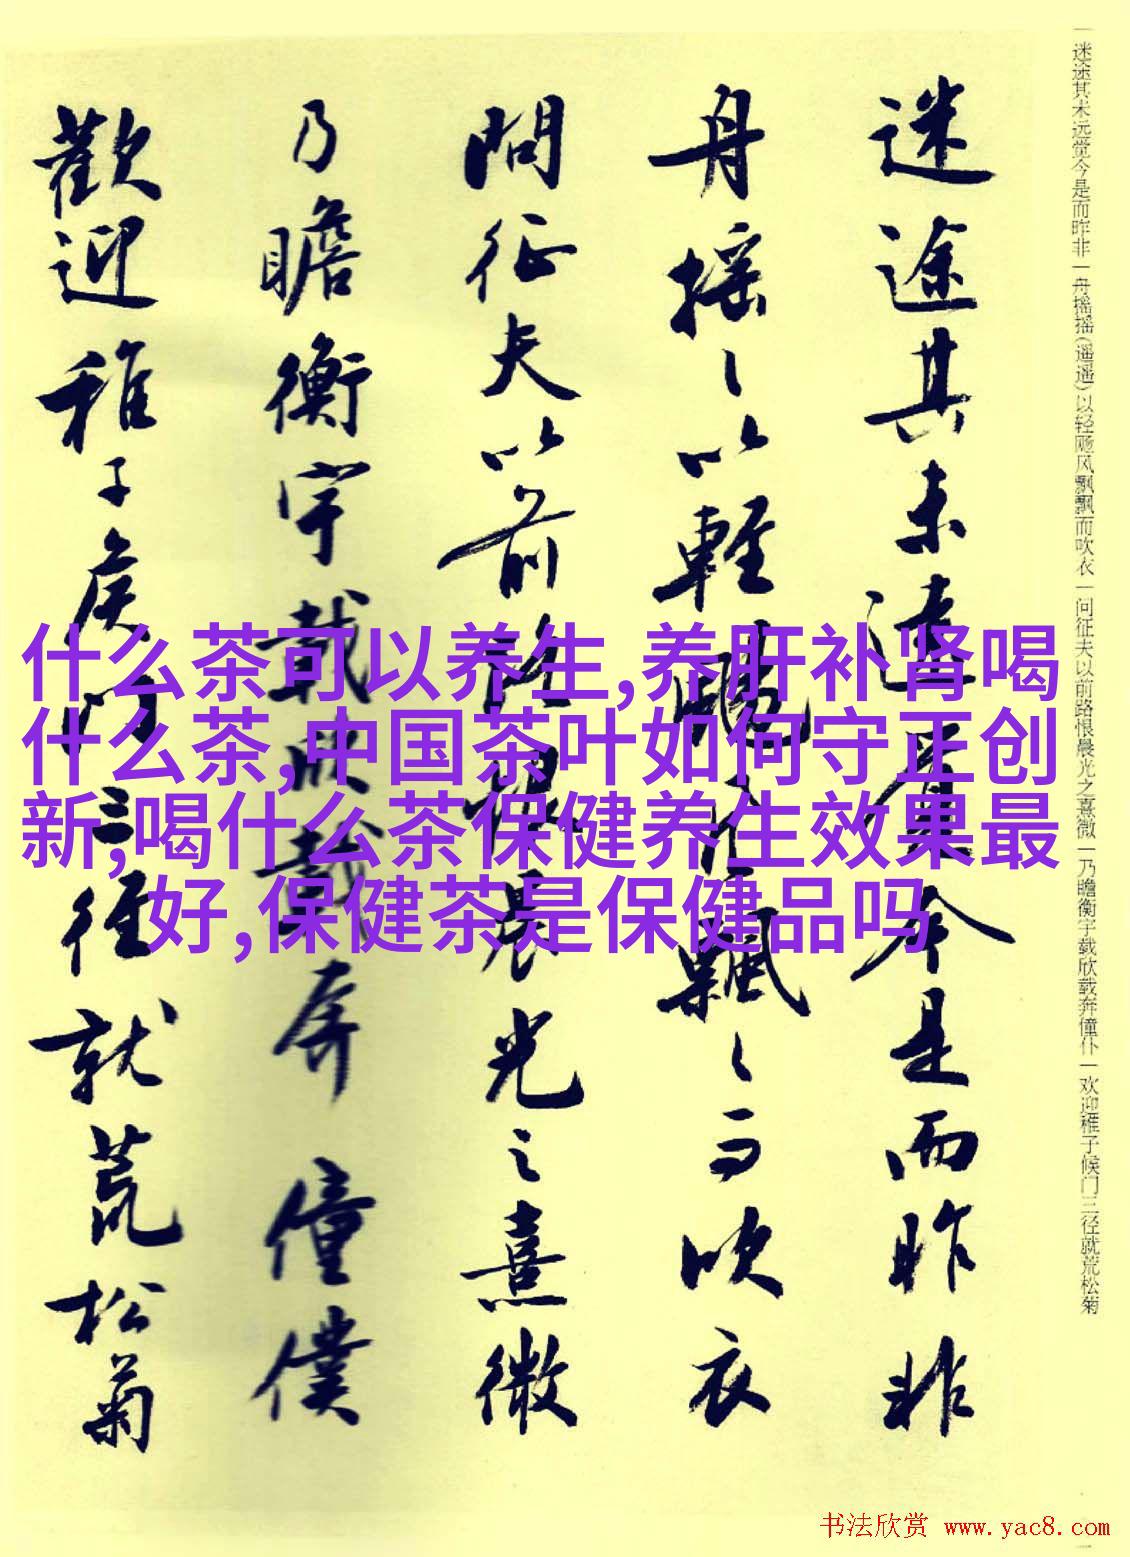 迷途其未遠覺今是而昨非
舟摇〻以輕颺風飄〻而吹衣
問征夫以前路恨晨光之熹微
乃瞻衡宇載欣載奔僮僕
歡迎稚子候門三徑就荒松菊
一迷途其未远觉今是而昨非一舟摇摇(遥遥)以轻飏风飘飘而吹衣一问征夫以前路恨晨光之熹微一乃瞻衡宇载欣载奔僮仆一欢迎稚子候门三径就荒松菊
什么茶可以养生,养肝补肾喝
什么茶,中国茶叶如何守正创
新,喝什么茶保健养生效果最
好,保健茶是保健品吗
书法欣赏 www.yac8.com